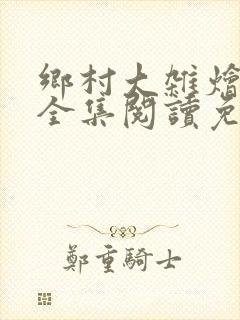 鄉村大雜燴
全集閱讀免
鄭重騎士